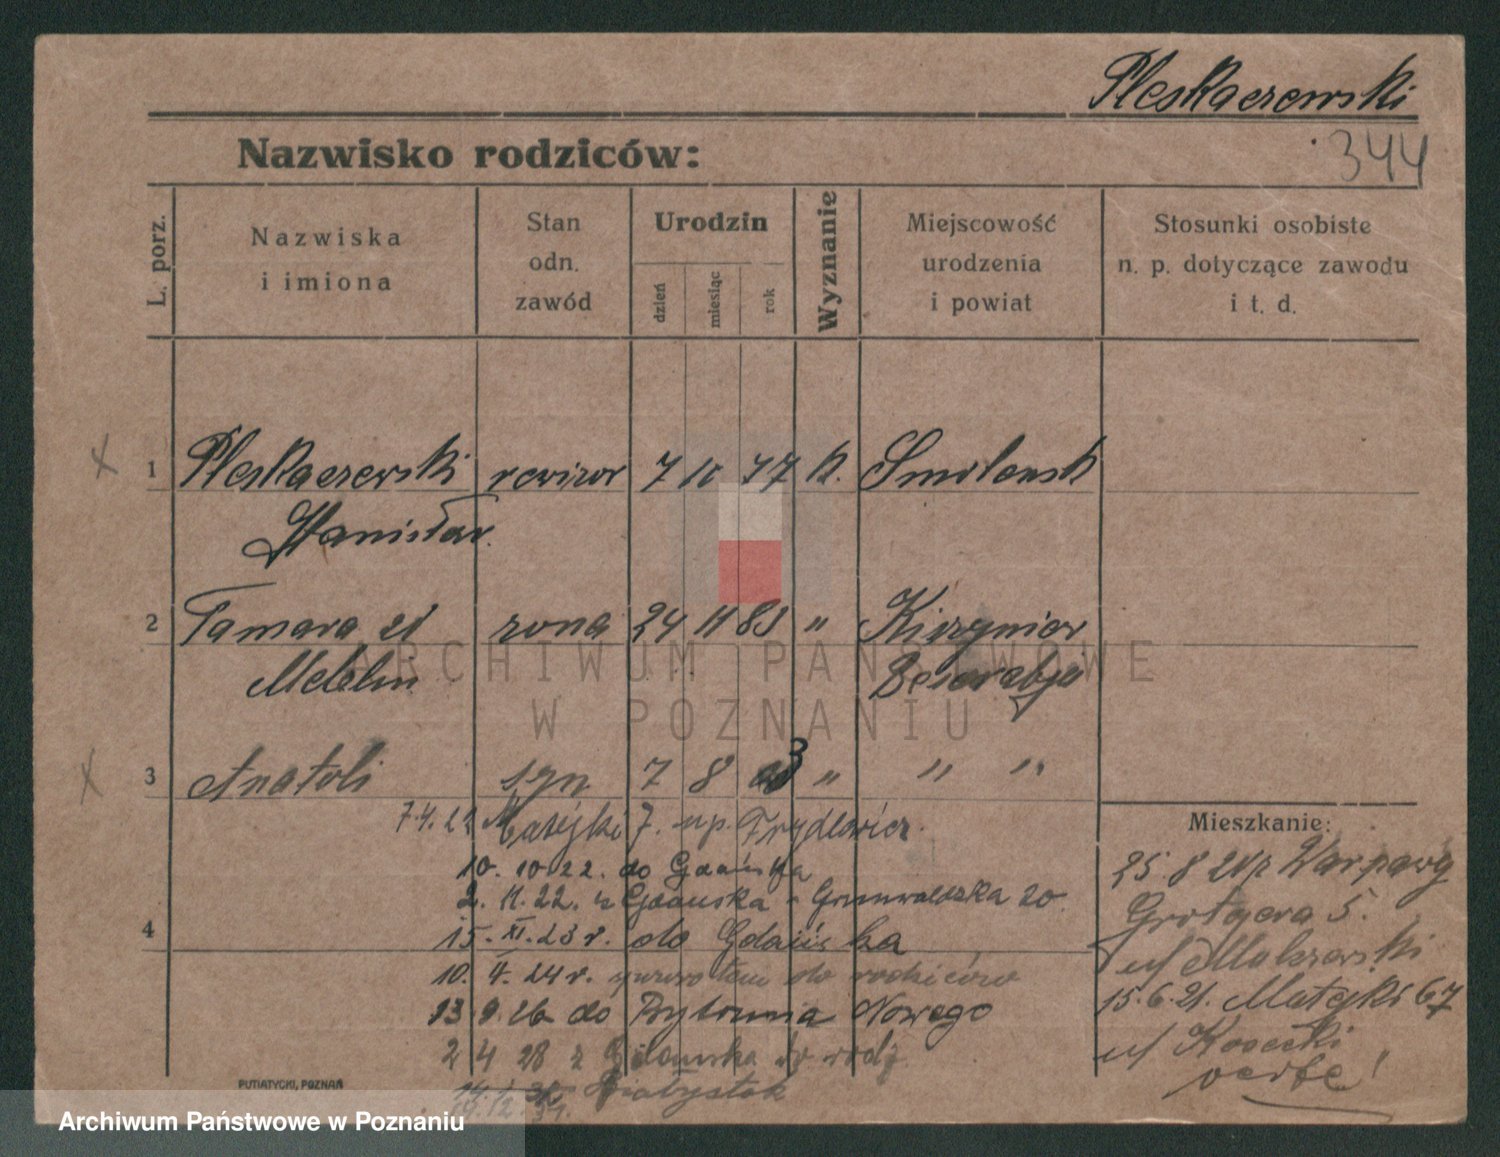 Pleskaczewski
344
Nazwisko rodziców:
L. porz.
Nazwiska i imiona
Stan odn. zawód
Urodzin
dzień miesiąc rok
Wyznanie
Miejscowość urodzenia i powiat
Stosunki osobiste n. p. dotyczące zawodu i t. d.
x 1 Pleskaczewski rewizor 7 10 77 k. Smolensk
Stanisław
2 Tamara zd żona 24 11 83 "
Besarabja
x 3 Anatoli syn 7 8 03 " " "
7.4.22 Matejki 7.
10. 10 22. do Gdańska
2. 11. 22. z Gdańska - Grunwaldzka 20.
4
15. XI. 23 r. do Gdańska
10. 4. 24 r. do rodziców
13 9. 26 do Bytomia Nowego
2 4 28 z Gdańska do rodz.
Białystok
Mieszkanie:
25. 8 21 z Warszawy
Grotgera 5.
u/
15.6.21. Matejki 67
u/ Kosecki
verte!
PUTIATYCKI, POZNAŃ
ARCHIWUM PAŃSTWOWE
W POZNANIU
Archiwum Państwowe w Poznaniu